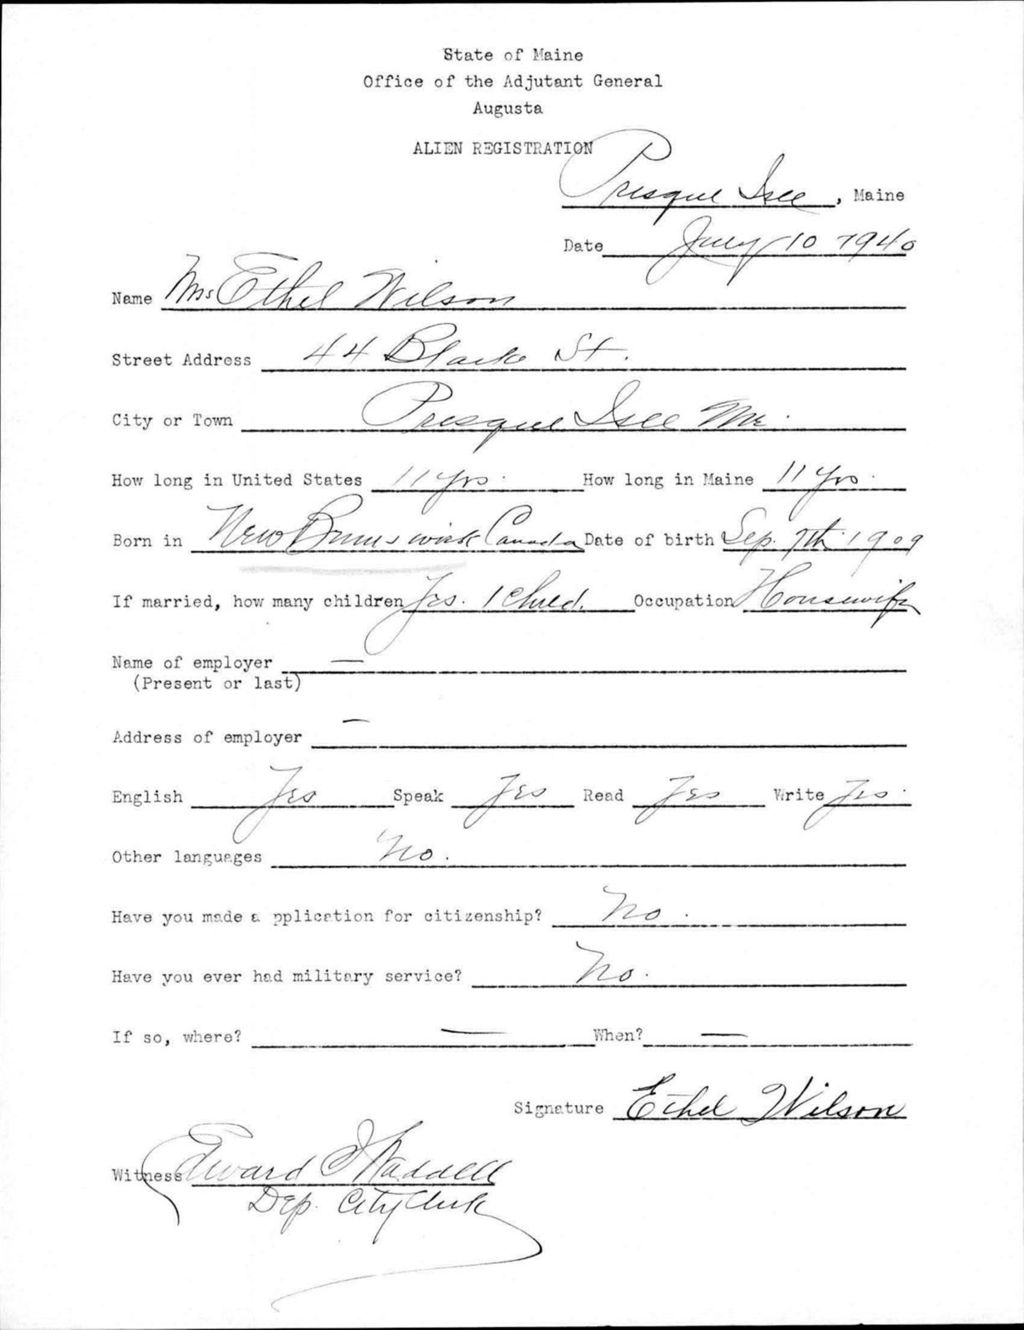 State of Maine
Office of the Adjutant General
Augusta
ALIEN REGISTRATION
Presque Isle, Maine
Date July 10 - 1940
Name Mrs Ethel Wilson
Street Address 44 Blake St.
City or Town Presque Isle Me.
How long in United States 11 Yrs. How long in Maine 11 Yrs.
Born in New Brunswick Canada Date of birth Sep. 7th. 1909
If married, how many children Yes. 1 Child. Occupation Housewife
Name of employer —
(Present or last)
Address of employer —
English Yes Speak Yes Read Yes Write Yes.
Other languages No.
Have you made a pplication for citizenship? No.
Have you ever had military service? No.
If so, where? — When? —
Signature Ethel Wilson
Witness Edward I Waddell
Dep. City Clerk